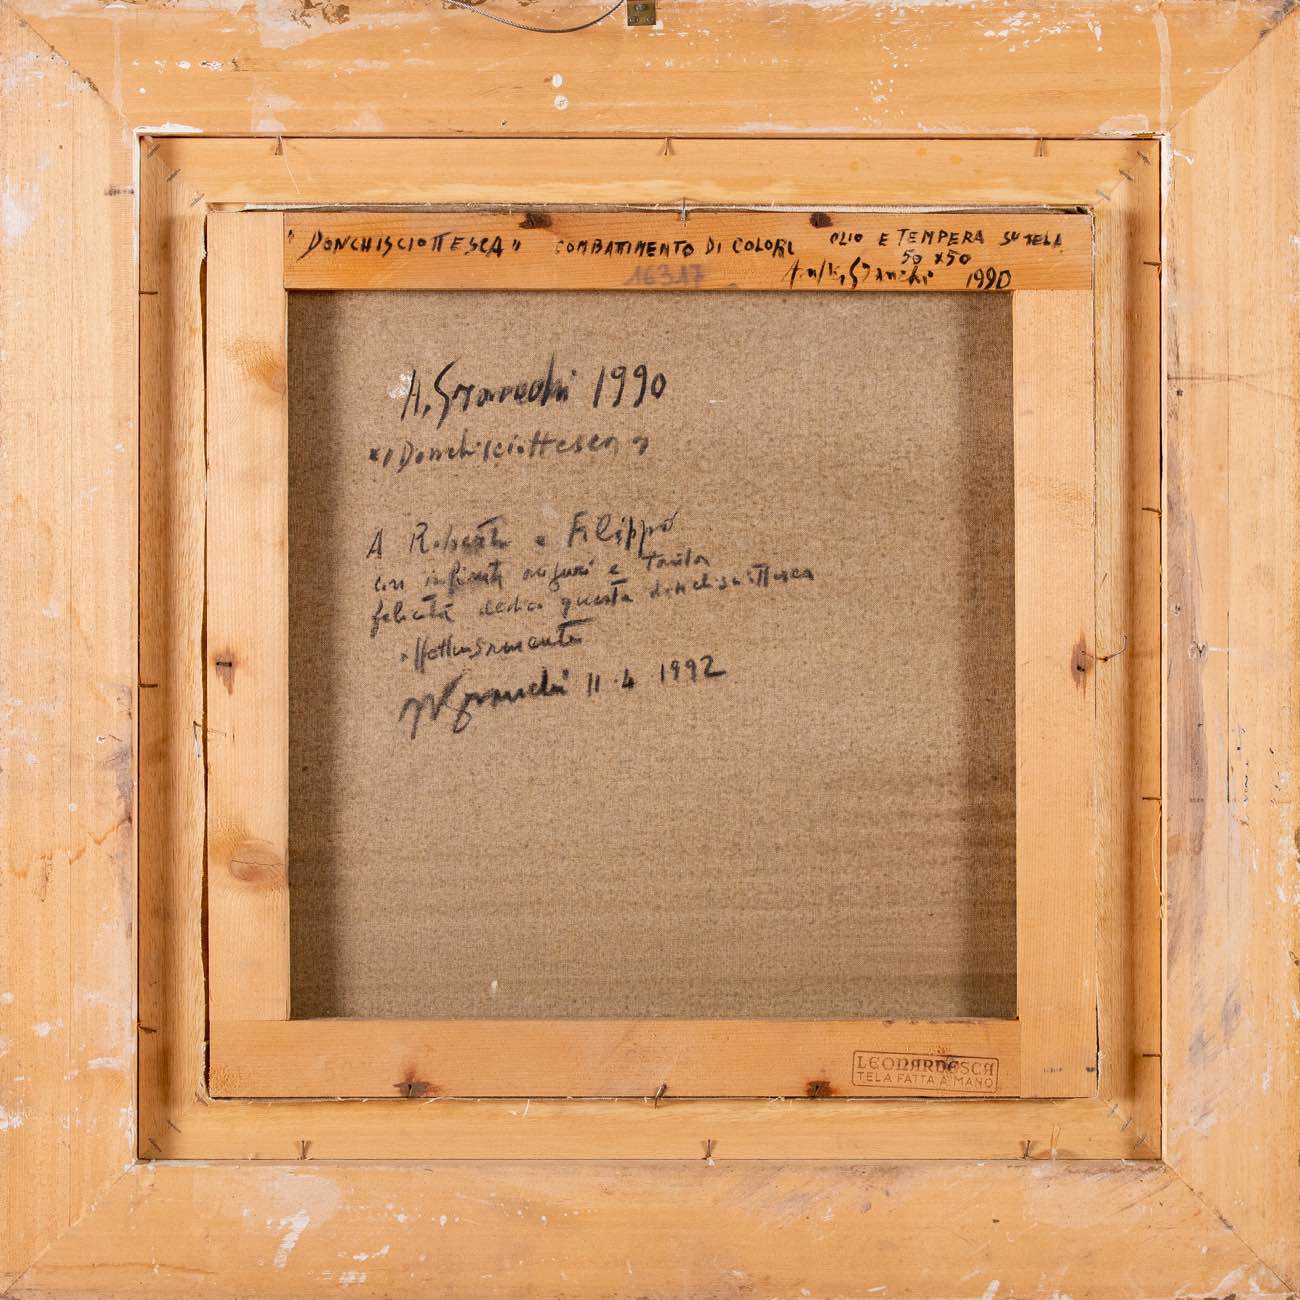 "DONCHISCIOTTESCA" COMBATTIMENTO DI COLORI OLIO E TEMPERA SU TELA
50 x 50
16317 1990
1990
"Donchisciottesca"
A Roberto e Filippo
con infiniti auguri e tanta
felicità dedico questa donchisciottesca
affettuosamente
11.4 1992
LEONARDESCA
TELA FATTA A MANO